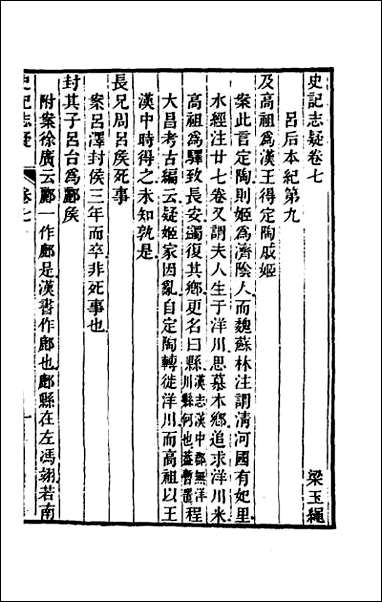 史記志疑卷七 梁玉繩
呂后本紀第九
及高祖爲漢王得定陶戚姬
案此言定陶則姬爲濟陰人而魏蘇林注謂清河國有妃里
水經注廿七卷又謂夫人生于洋川思慕本鄉追求洋川米
高祖爲驛致長安蠲復其鄉更名曰縣漢志漢中郡無洋川縣何也蓋暫置程
大昌考古編云疑姬家因亂自定陶轉徙洋川而高祖以王
漢中時得之未知孰是
長兄周呂矦死事
案呂澤封侯三年而卒非死事也
封其子呂台爲酈矦
附案徐廣云酈一作鄜是漢書作鄜也鄜縣在左馮翊若南
史記志疑 卷七 一